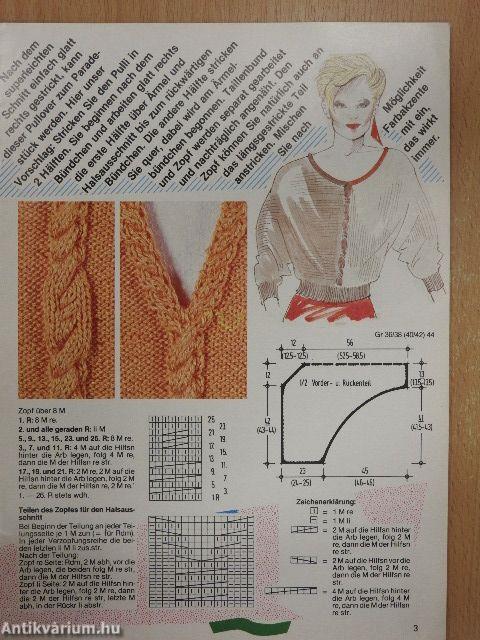 Nach dem
superleichten
Schnitt einfach glatt
rechts gestrickt, kann
dieser Pullover zum Parade-
stück werden. Hier unser
Vorschlag: Stricken Sie den Pulli in
2 Hälften. Sie beginnen nach dem
Bündchen und arbeiten glatt rechts
die erste Hälfte über Ärmel und
Halsausschnitt bis zum rückwärtigen
Bündchen. Die andere Hälfte stricken
Sie quer, dabei wird am Ärmel-
bündchen begonnen. Taillenbund
und Zopf werden separat gearbeitet
und nachträglich angenäht. Den
Zopf können Sie natürlich auch an
das längsgestrickte Teil
anstricken. Mischen
Sie nach
Möglichkeit
Farbakzente
mit ein,
das wirkt
immer.
Gr 36/38 (40/42) 44
12
(12,5-12,5)
56
(57,5-58,5)
12
13
(13,5-13,5)
1/2 Vorder- u. Rückenteil
42
(43-44)
41
(41,5-43)
23
(24-25)
45
(46-46)
Zopf über 8 M
1. R: 8 M re.
2. und alle geraden R: li M
5., 9., 13., 15., 23. und 25. R: 8 M re.
3., 7. und 11. R: 4 M auf die Hilfsn
hinter die Arb legen, folg 4 M re,
dann die M der Hilfsn re str.
17., 19. und 21. R: 2 M re, 2 M auf die
Hilfsn hinter die Arb legen, folg 2 M
re, dann die M der Hilfsn re, 2 M re.
1. — 26. R stets wdh.
25
23.
21.
19.
17.
15.
13.
11.
9.
7.
5.
3.
1 R
Teilen des Zopfes für den Halsaus-
schnitt
Bei Beginn der Teilung an jeder Tei-
lungsseite je 1 M zun (= für Rdm).
In jeder Verzopfungsreihe die bei-
den letzten li M li zus.str.
Nach der Teilung:
Zopf re Seite: Rdm, 2 M abh, vor die
Arb legen, die beiden folg M re str,
dann die M der Hilfsn re str.
Zopf li Seite: 2 M auf die Hilfsn hin-
ter die Arb legen, folg 2 M re, dann
die 2 M der Hilfsn re str, letzte M
abh, in der Rückr li abstr.
Zeichenerklärung:
= 1 M re
= 1 M li
= 2 M auf die Hilfsn hinter
die Arb legen, folg 2 M
re, dann die M der Hilfsn
re str.
= 2 M auf die Hilfsn vor die
Arb legen, folg 2 M re,
dann die M der Hilfsn re
str.
= 4 M auf die Hilfsn hinter
die Arb legen, folg 4 M
re, dann die M der Hilfsn
re str.
3
Antikvárium.hu